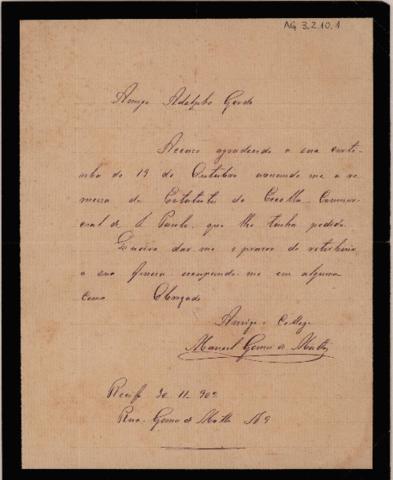 AG 3.2.10.1
Amigo Adolpho Gordo
Accuso agradecido a sua carti-
nha de 19 de Outubro avisando me a re-
messa de Estatutos da Escolla Commer-
cial de S. Paulo que lhe tinha pedido.
Queira dar-me o prazer de retribuir
a sua fineza occupando-me em alguma
cousa Obrigado
Amigo e Collega
Manoel Gomes de Mattos
Recife 30. 11. 902
Rua Gomes de Mattos Nº 9